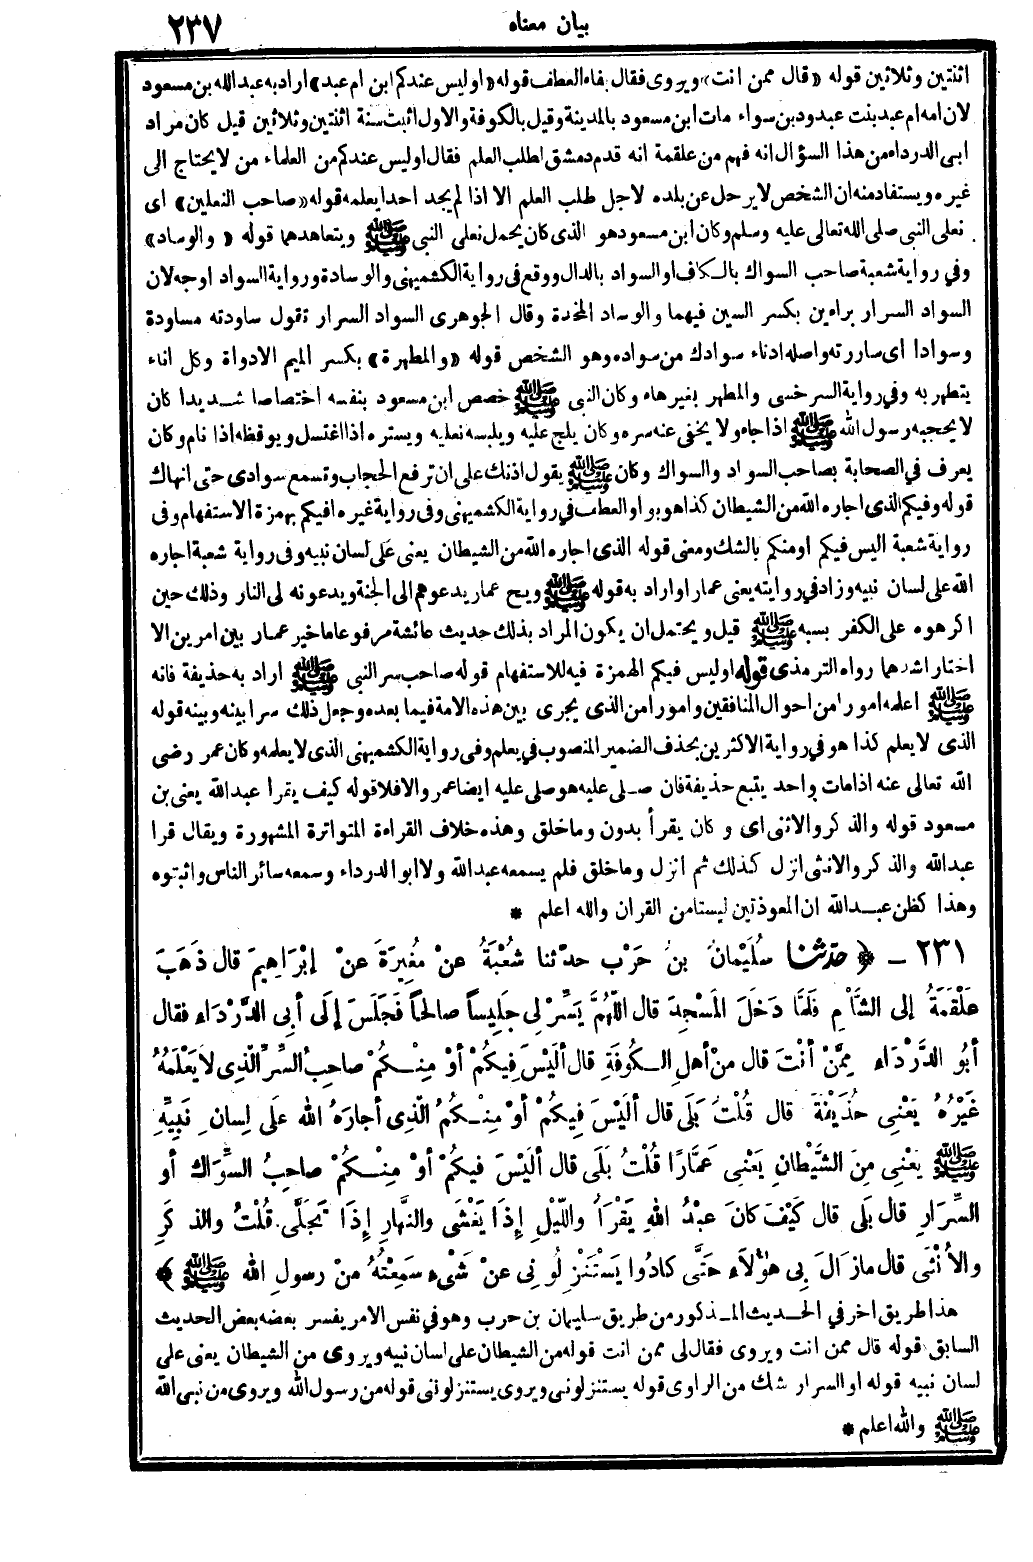 بيان معناه
٢٣٧
اثنتين وثلاثين قوله «قال ممن انت» ويروى فقال بفاء العطف قوله «اوليس عندكم ابن ام عبد» اراد به عبد الله بن مسعود
لان امه ام عبد بنت عبدود بن سواء مات ابن مسعود بالمدينة وقيل بالكوفة والاول اثبت سنة اثنتين وثلاثين قيل كان مراد
ابى الدرداء من هذا السؤال انه فهم من علقمة انه قدم دمشق لطلب العلم فقال اوليس عندكم من العلماء من لا يحتاج الى
غيره ويستفاد منه ان الشخص لا يرحل عن بلده لاجل طلب العلم الا اذا لم يجد احدا يعلمه قوله «صاحب النعلين» اى
نعلى النبى صلى الله تعالى عليه وسلم وكان ابن مسعود هو الذى كان يحمل نعلى النبى ﷺ ويتعاهدهما قوله «والوساد»
وفي رواية شعبة صاحب السواك بالكاف او السواد بالدال ووقع فى رواية الكشميهنى والوسادة ورواية السواد اوجه لان
السواد السرار براءين بكسر السين فيهما والوساد المخدة وقال الجوهرى السواد السرار تقول ساودته مساودة
وسوادا اى ساررته واصله ادناء سوادك من سواده وهو الشخص قوله «والمطهرة» بكسر الميم الادواة وكل اناء
يتطهر به وفي رواية السرخسى والمطهر بغير هاء وكان النبى ﷺ خصص ابن مسعود بنفسه اختصاصا شديدا كان
لا يحجبه رسول الله ﷺ اذا جاء ولا يخفى عنه سره وكان يلج عليه ويلبسه نعليه ويستره اذا اغتسل ويوقظه اذا نام وكان
يعرف في الصحابة بصاحب السواد والسواك وكان ﷺ يقول اذنك على ان ترفع الحجاب وتسمع سوادى حتى انهاك
قوله وفيكم الذى اجاره الله من الشيطان كذا هو بواو العطف في رواية الكشميهنى وفى رواية غيره افيكم بهمزة الاستفهام وفى
رواية شعبة اليس فيكم او منكم بالشك ومعنى قوله الذى اجاره الله من الشيطان يعنى على لسان نبيه وفى رواية شعبة اجاره
الله على لسان نبيه وزاد في روايته يعنى عمارا واراد به قوله ﷺ ويح عمار يدعوهم الى الجنة ويدعونه لى النار وذلك حين
اكرهوه على الكفر بسبه ﷺ قيل ويحتمل ان يكون المراد بذلك حديث عائشة مرفوعا ما خير عمار بين امرين الا
اختار اشدهما رواه الترمذى قوله اوليس فيكم الهمزة فيه للاستفهام قوله صاحب سر النبى ﷺ اراد به حذيفة فانه
ﷺ اعلمه امورا من احوال المنافقين وامورا من الذى يجرى بين هذه الامة فيما بعده وجعل ذلك سرا بينه وبينه قوله
الذى لا يعلم كذا هو في رواية الاكثرين بحذف الضمير المنصوب في يعلم وفى رواية الكشميهنى الذى لا يعلمه وكان عمر رضى
الله تعالى عنه اذا مات واحد يتبع حذيفة فان صلى عليه هو صلى عليه ايضا عمر والا فلا قوله كيف يقرأ عبد الله يعنى بن
مسعود قوله والذكر والانثى اى و كان يقرأ بدون وما خلق وهذه خلاف القراءة المتواترة المشهورة ويقال قرا
عبد الله والذكر والانثى انزل كذلك ثم انزل وما خلق فلم يسمعه عبد الله ولا ابو الدرداء وسمعه سائر الناس واثبتوه
وهذا كظن عبد الله ان المعوذتين ليستا من القران والله اعلم *
٢٣١ ـ ﴿ حدّثنا سُلَيْمانُ بنُ حَرْب حدّثنا شُعْبَةُ عنْ مُغِيرَةَ عنْ إبْرَاهِيمَ قال ذَهَبَ
عَلْقَمَةُ إلى الشَّأْمِ فَلَمَّا دَخَلَ المَسْجِدَ قال اللّهُمَّ يَسِّرْ لى جَلِيساً صالحاً فَجَلَسَ إلَى أبِى الدَّرْدَاءِ فقال
أبُو الدَّرْدَاءِ مِمَّنْ أنْتَ قال منْ أهلِ الكُوفَةِ قال ألَيْسَ فِيكُمْ أوْ مِنْكُمْ صاحبُ السِّرِّ الّذِى لاَ يَعْلَمُهُ
غَيْرُهُ يَعْنِى حُذَيْفَةَ قال قُلْتُ بَلَى قال ألَيْسَ فِيكُمْ أوْ مِنْكُمُ الّذِى أجارَهُ الله علَى لِسانِ نَبِيِّهِ
ﷺ يَعْنِى مِنَ الشَّيْطانِ يَعْنِى عَمَّارًا قُلْتُ بَلَى قال ألَيْسَ فيكُمْ أوْ مِنْكُمْ صاحِبُ السِّوَاكِ أو
السِّرَارِ قال بَلَى قال كَيْفَ كانَ عبْدُ اللهِ يَقْرَأُ واللّيْلِ إذَا يَغْشَى والنَّهارِ إذَا تَجَلَّى قُلْتُ والذَّكَرِ
والأُنْثَى قال مازَالَ بِى هؤُلاَءِ حَتَّى كادُوا يَسْتَنْزِلُونِى عنْ شَىْءٍ سَمِعْتُهُ منْ رسولِ الله ﷺ ﴾
هذا طريق اخر في الحديث المذكور من طريق سليمان بن حرب وهو في نفس الامر يفسر بعضه بعض الحديث
السابق قوله قال ممن انت ويروى فقال لى ممن انت قوله من الشيطان على لسان نبيه ويروى من الشيطان يعنى على
لسان نبيه قوله او السرار شك من الراوى قوله يستنزلونى ويروى يستنزلوننى قوله من رسول الله ويروى من نبى الله
ﷺ والله اعلم *